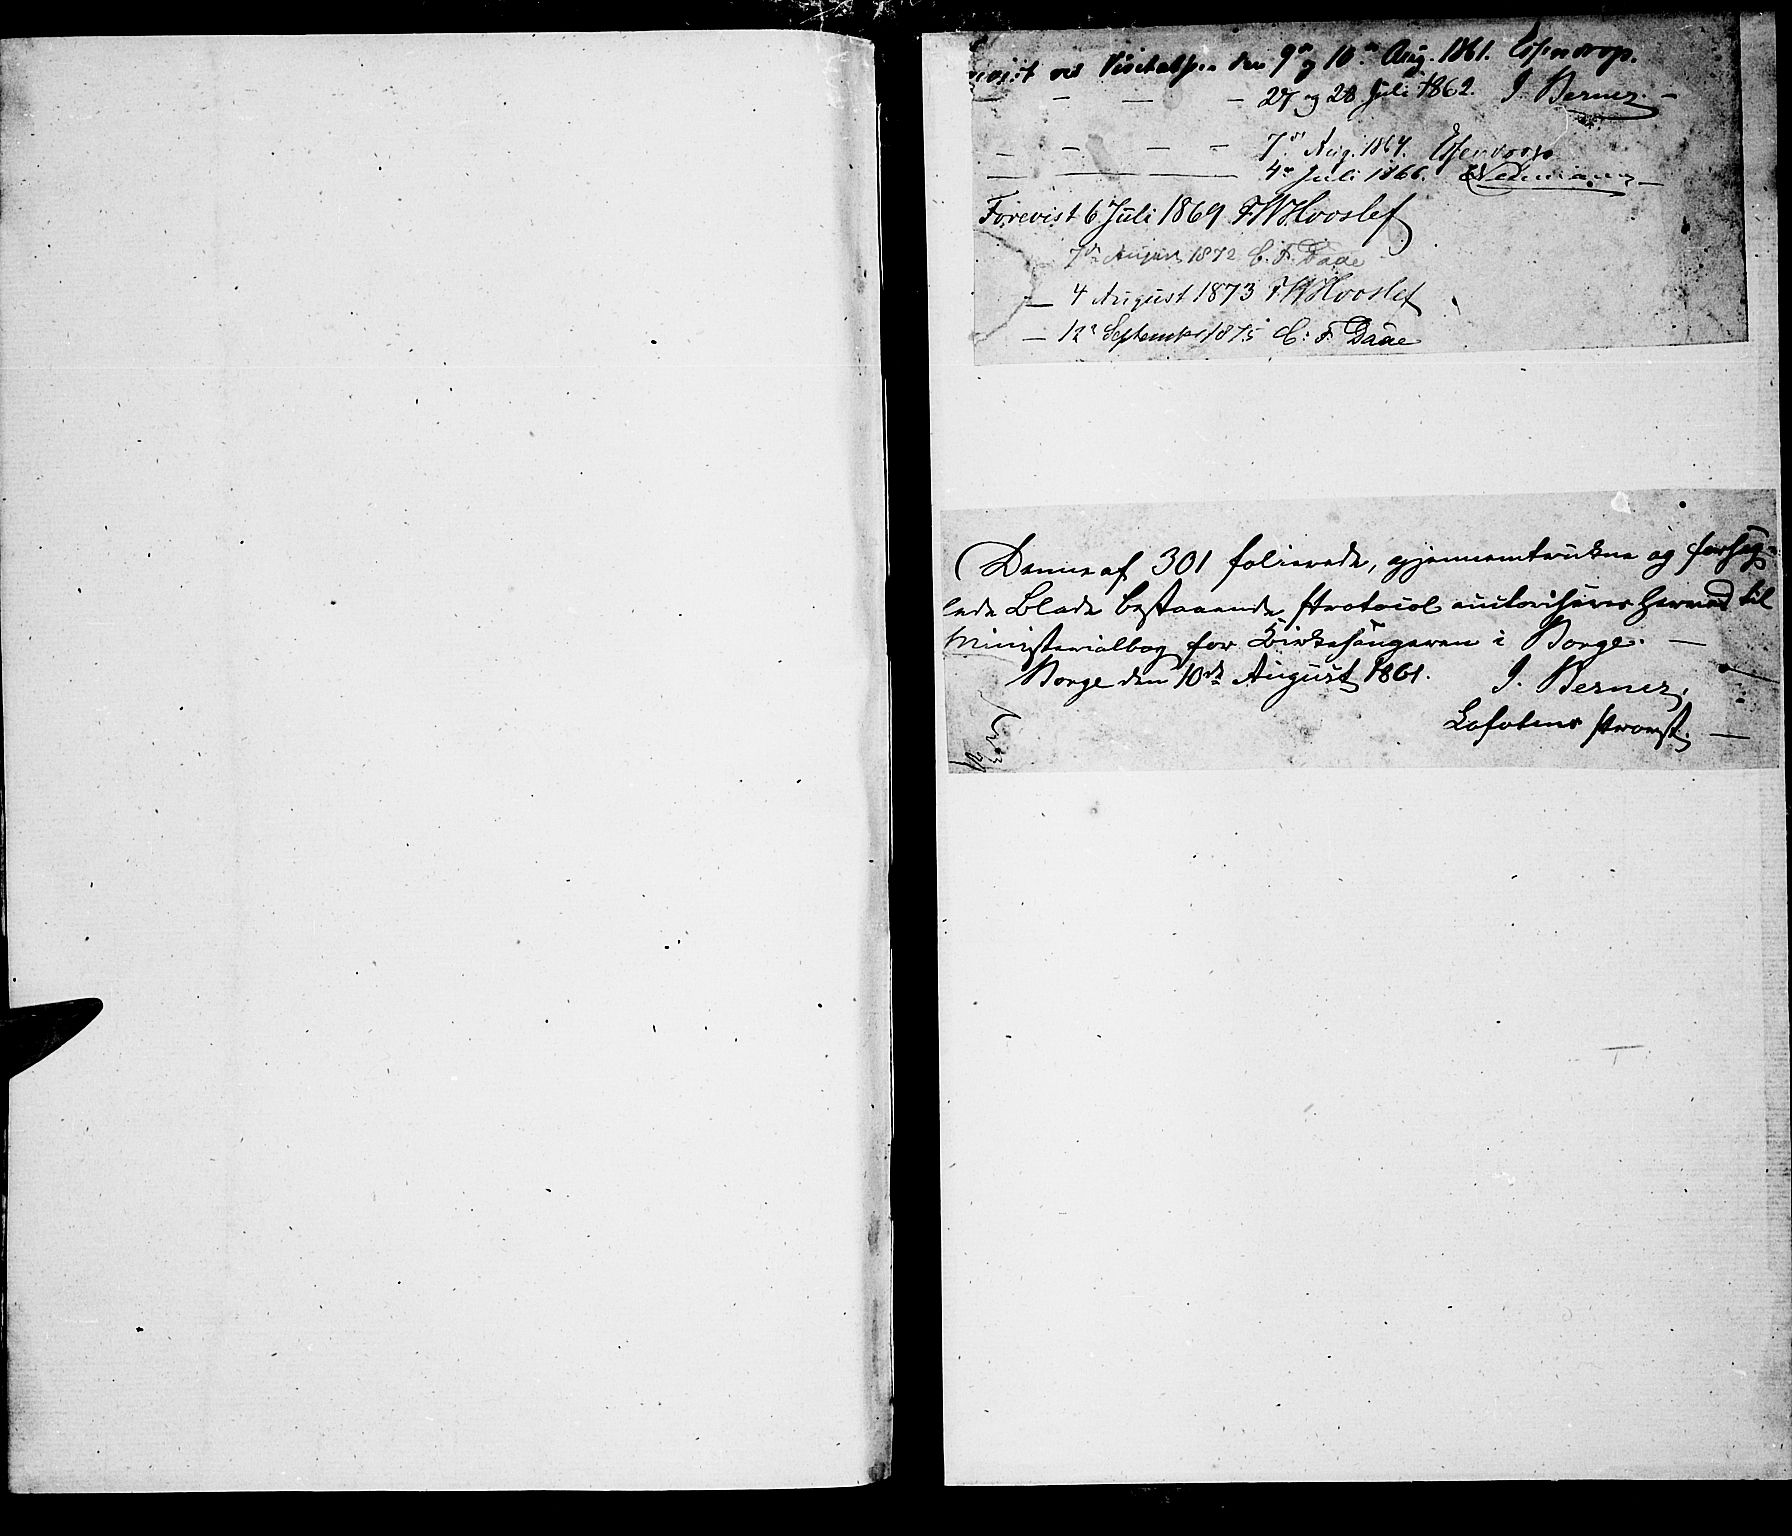 ved Visitatsen den 9de og 10de Aug. 1861. Essendrop.
— — — — 27 og 28 Juli 1862. J. Berner. —
— — — — 7de Aug. 1864. Essendrop
— — — 4de Juli 1866.
Forevist 6 Juli 1869 F W Hvoslef
7de August 1872 C. F. Daae
— 4 August 1873 F W Hvoslef
— 12te September 1875 C. F. Daae
Denne af 301 folierede, igjennemtrukne og forseg-
lede Blade bestaaende Protocol autoriseres herved til
Ministerialbog for Kirkesangeren i Borge. —
Borge den 10de August 1861. J. Berner.
Lofotens Provst. —